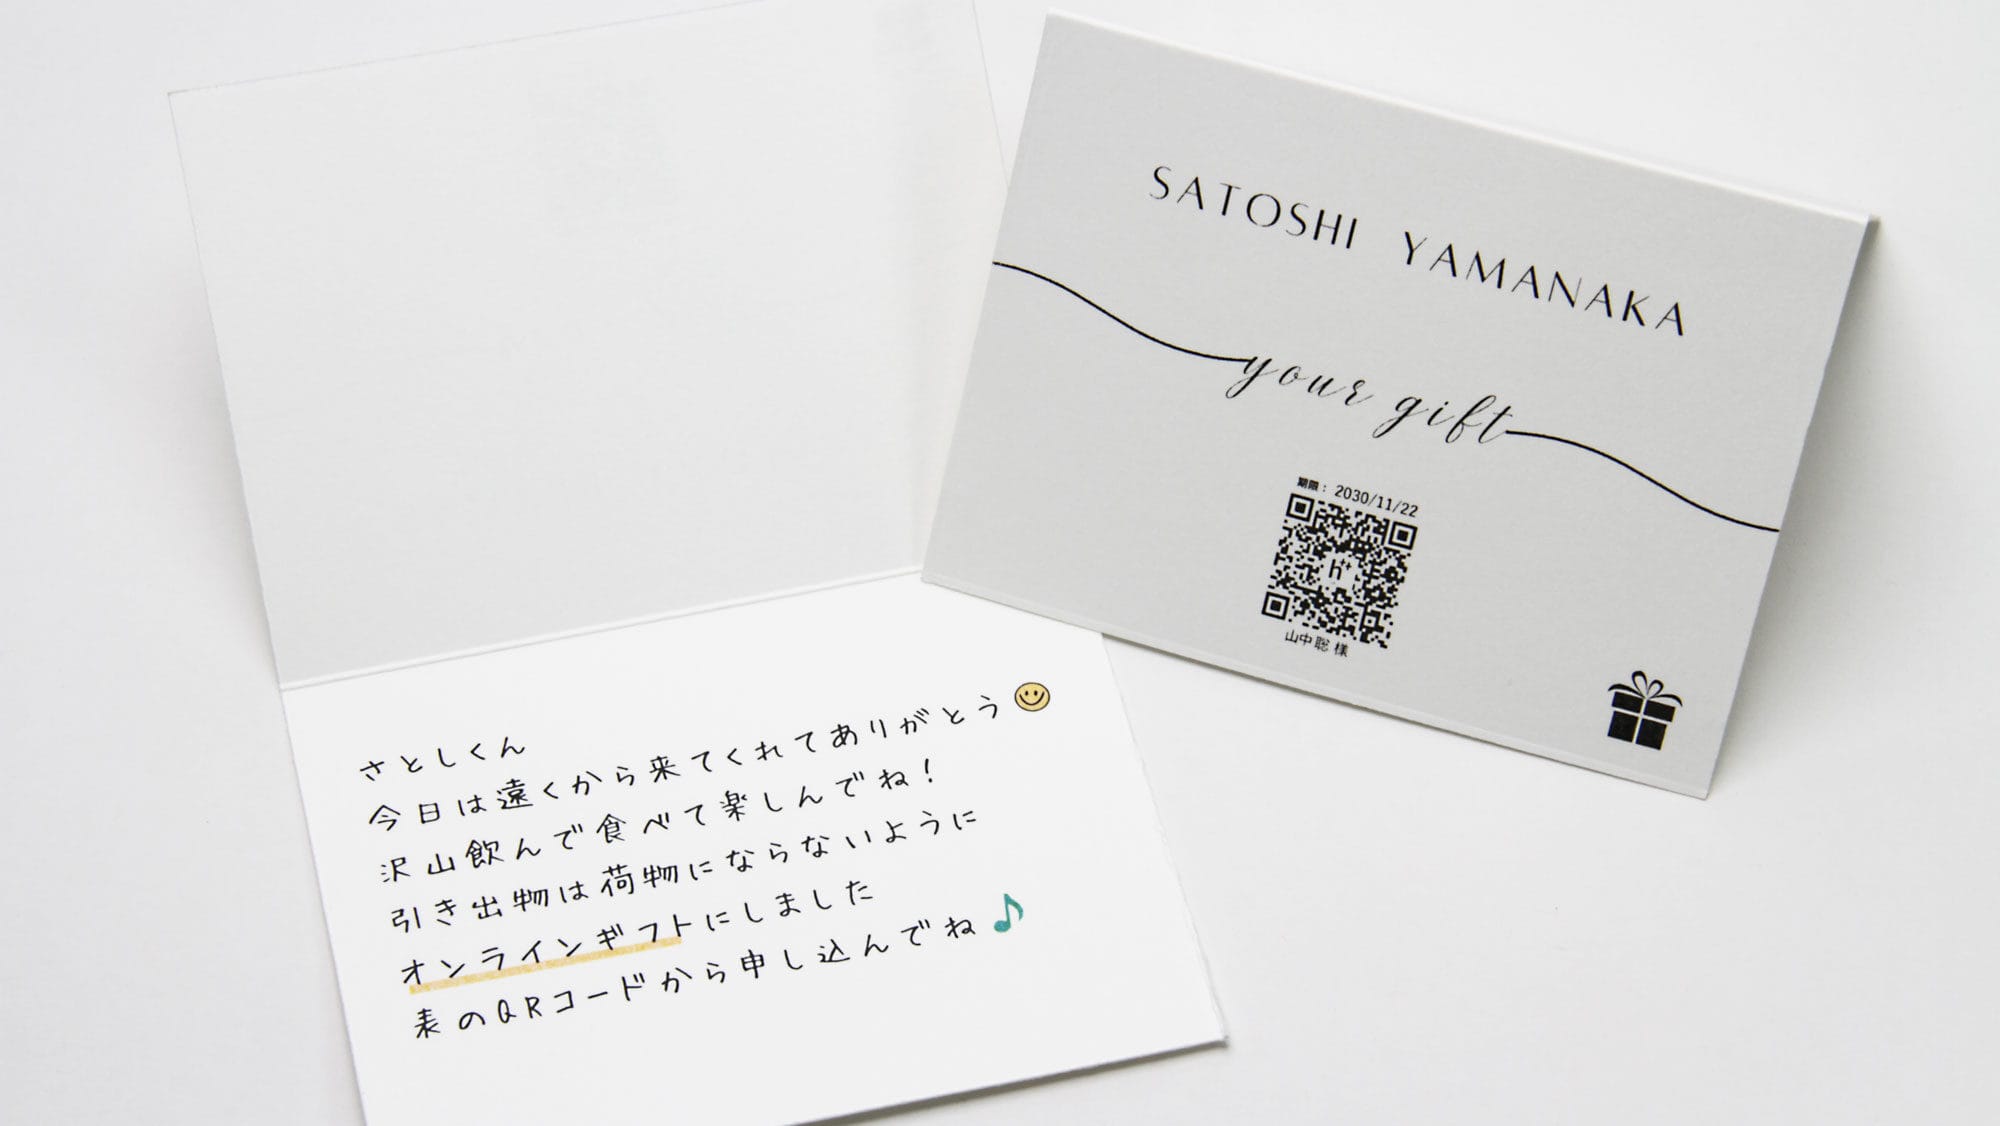 さとしくん
今日は遠くから来てくれてありがとう
沢山飲んで食べて楽しんでね!
引き出物は荷物にならないように
オンラインギフトにしました
表のQRコードから申し込んでね
SATOSHI YAMANAKA
your gift
期限: 2030/11/22
h++
山中 聡 様